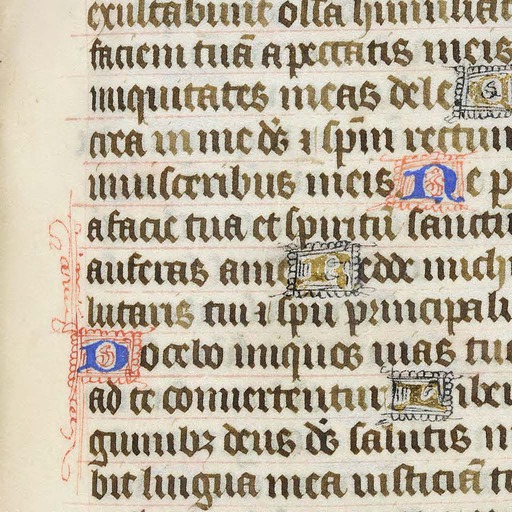 exultabunt ossa humiliat
faciem tuā a peccatis meis
iniquitates meas dele
crea in me ds̄ ⁊ sp̄m rectum
uisceribus meis Ne p
a facie tua et spiritū sanctu
auferas a me Redde mich
lutaris tui ⁊ spū principali
Docebo iniquos uias tu
ad te conuertentur Libe
guinibꝫ deus ds̄ salutis m
bit lingua mea iusticiā t